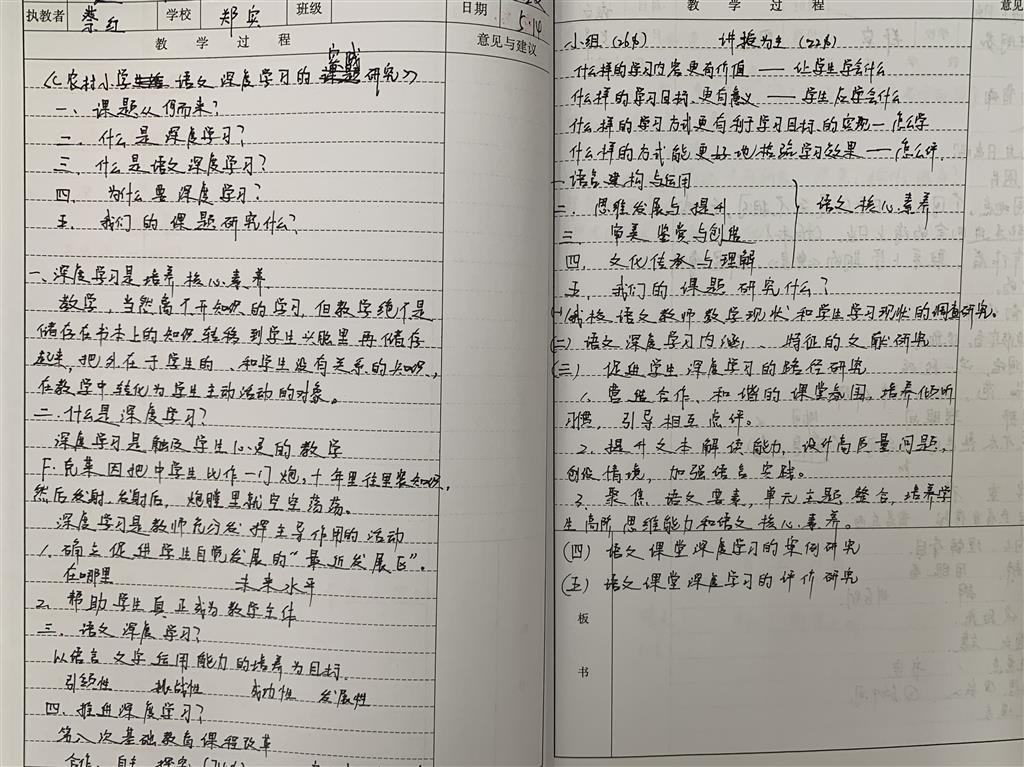 执教者 蔡红 学校 郑实 班级 日期 5.14
教 学 过 程 意见与建议
《农村小学语文深度学习的实践研究》
一、课题从何而来?
二、什么是深度学习?
三、什么是语文深度学习?
四、为什么要深度学习?
五、我们的课题研究什么?
一、深度学习是培养核心素养
教学,当然离不开知识的学习,但教学绝不是
储存在书本上的知识转移到学生头脑里再储存
起来,把外在于学生的、和学生没有关系的知识,
在教学中转化为学生主动活动的对象。
二、什么是深度学习?
深度学习是触及学生心灵的教学
F·克莱因把中学生比作一门炮,十年里往里装知识,
然后发射,发射后,炮膛里就空空荡荡。
深度学习是教师充分发挥主导作用的活动
1、确立促进学生自觉发展的“最近发展区”。
在哪里 未来水平
2、帮助学生真正成为教学主体
三、语文深度学习?
以语言文字运用能力的培养为目标
引领性 挑战性 成功性 发展性
四、推进深度学习?
第八次基础教育课程改革
合作、自主、探究
教 学 过 程 意见
小组(26%) 讲授为主(22%)
什么样的学习内容更有价值——让学生学会什么
什么样的学习目标,更有意义——学生应学会什么
什么样的学习方式更有利于学习目标的实现—怎么学
什么样的方式能更好地检验学习效果——怎么评.
一、语言建构与运用
二、思维发展与提升 语文核心素养
三、审美鉴赏与创造
四、文化传承与理解
五、我们的课题研究什么?
(一)我校语文教师教学现状和学生学习现状的调查研究。
(二)语文深度学习内涵、特征的文献研究
(三)促进学生深度学习的路径研究
1、营造合作、和谐的课堂氛围,培养倾听
习惯,引导相互点评。
2、提升文本解读能力,设计高质量问题,
创设情境,加强语言实践。
3、聚焦语文要素,单元主题整合,培养学
生高阶思维能力和语文核心素养。
(四)语文课堂深度学习的案例研究
(五)语文课堂深度学习的评价研究
板
书